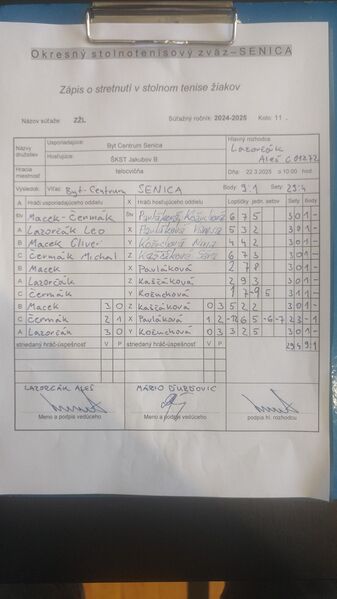 Okresný stolnotenisový zväz–SENICA
Zápis o stretnutí v stolnom tenise žiakov
Názov súťaže ZŽL Súťažný ročník: 2024-2025 Kolo: 11 .
Názvy družstiev Usporiadajúce: Byt Centrum Senica Hlavný rozhodca
Hosťujúce: ŠKST Jakubov B Lazorčák Aleš C 01272
Hracia miestnosť telocvičňa Dňa: 22.3.2025 o 10:00 hod.
Výsledok: Víťaz Byt-Centrum SENICA Body: 9:1 Sety: 29:4
A Hráči usporiadajúceho oddielu X Hráči hosťujúceho oddielu Loptičky jedn. setov Sety Body
Štv Macek-Čermák Štv Pavláková Kožuchová 6 7 5 3 0 1 -
A Lazorčák Leo X Pavláková 5 3 2 3 0 1 -
B Macek Oliver Y Kožuchová Nina 4 4 2 3 0 1 -
C Čermák Michal Z Kaščáková Sára 6 7 3 3 0 1 -
B Macek X Pavláková 2 7 8 3 0 1 -
A Lazorčák Z Kaščáková 2 9 3 3 0 1 -
C Čermák Y Kožuchová 3 0 1 -
B Macek 3 0 Z Kaščáková 0 3 5 2 2 3 0 1 -
C Čermák 2 1 X Pavláková 1 2 -12 6 5 -6 -7 2 3 - 1
A Lazorčák 3 0 Y Kožuchová 0 3 3 2 5 3 0 1 -
striedaný hráč-úspešnosť V P striedaný hráč-úspešnosť V P 29 4 9 1
LAZORČÁK ALEŠ MÁRIO
Meno a podpis vedúceho Meno a podpis vedúceho podpis hl. rozhodcu